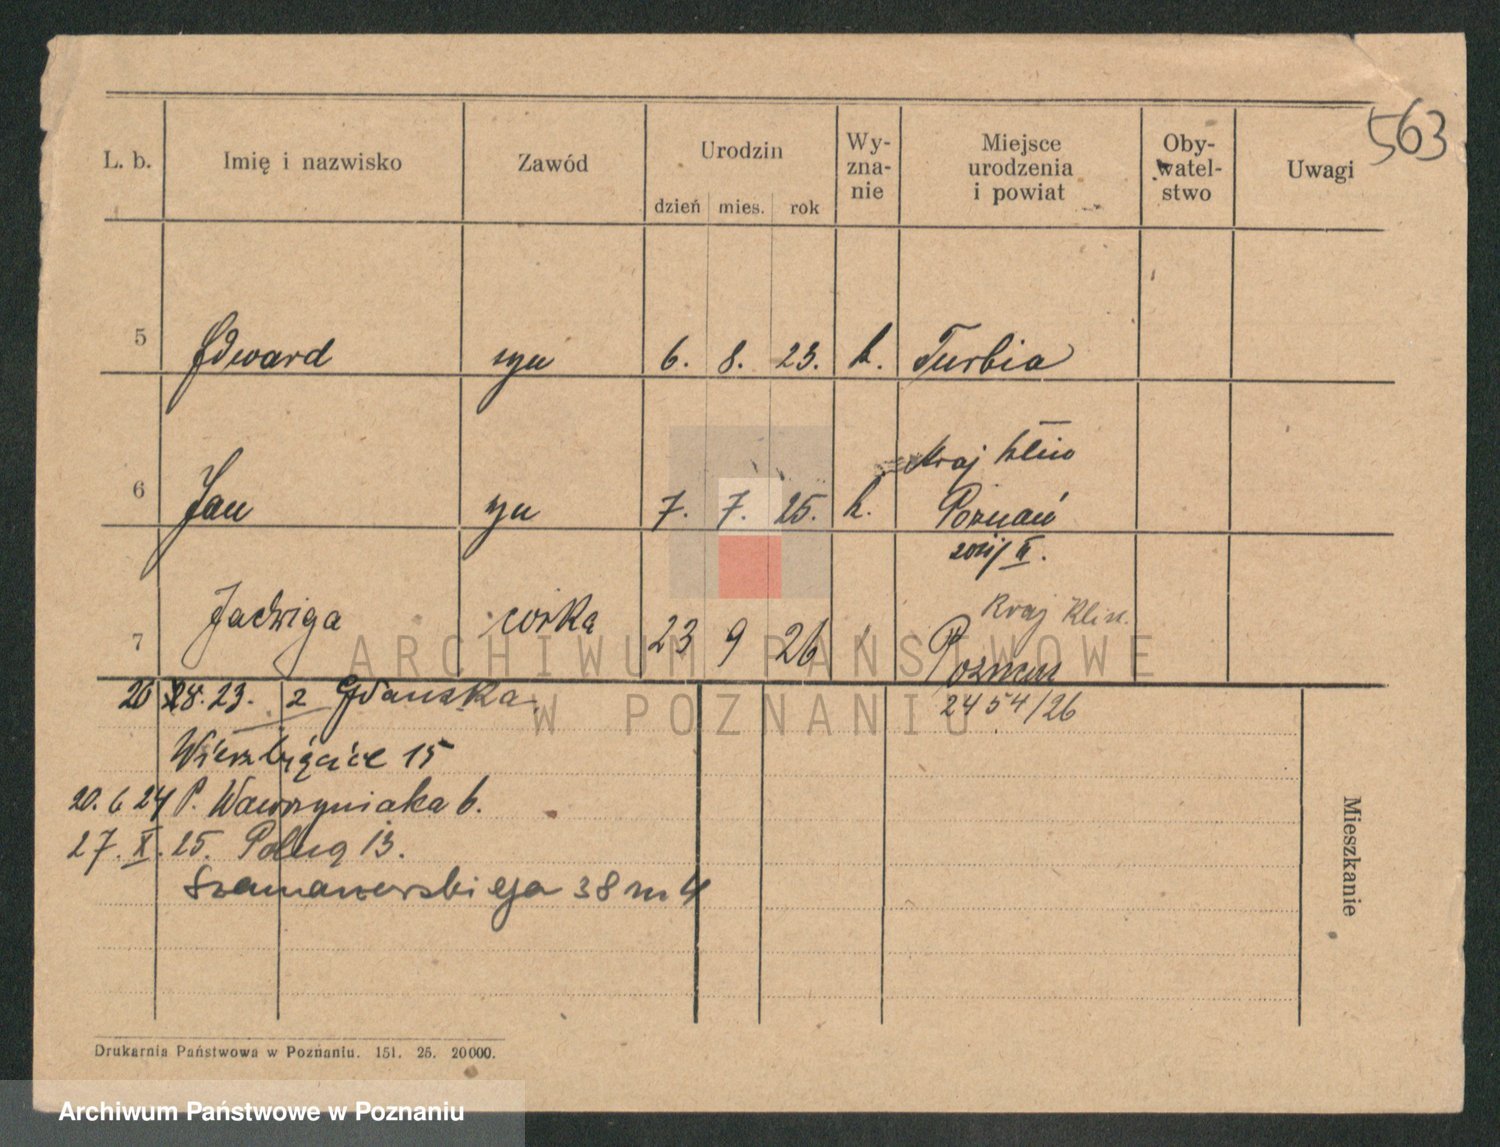 563
L. b. Imię i nazwisko Zawód Urodzin Wy-zna-nie Miejsce urodzenia i powiat Oby-watel-stwo Uwagi
dzień mies. rok
5 Edward syn 6. 8. 23. k. Turbia
Kraj klin
6 Jan syn 7. 7. 25. k. Poznań
Kraj klin.
7 Jadwiga córka 23 9 26 Poznań
2454/26
ARCHIWUM PAŃSTWOWE
W POZNANIU
20 28. 23. 2 Gdańska
Wierzbięcice 15
20. 6 24 P. Wawrzyniaka 6.
27. X. 25. Polną 13.
Szamarzewskiego 38 m 4
Mieszkanie
Drukarnia Państwowa w Poznaniu. 151. 25. 20000.
Archiwum Państwowe w Poznaniu